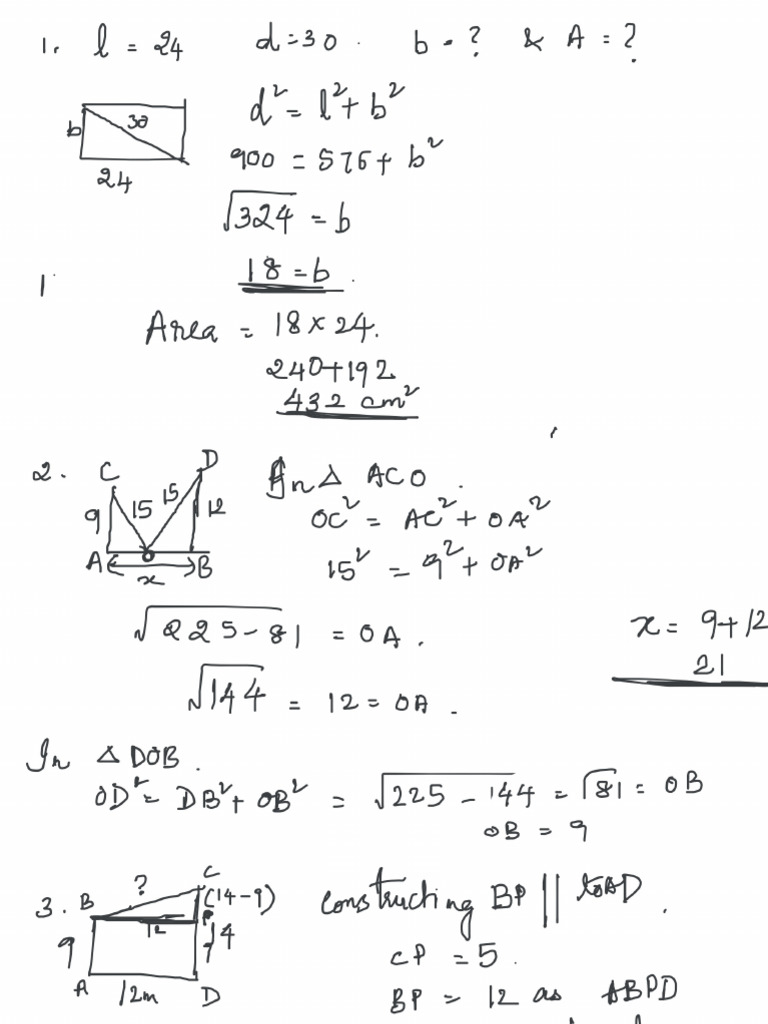 1. l = 24 d = 30 . b = ? & A = ?
b 30
24
d² = l² + b²
900 = 576 + b²
√324 = b
18 = b .
1
Area = 18 × 24.
240+192
432 cm²
2. C D
9 15 15 12
A O B
x
In Δ ACO .
OC² = AC² + OA²
15² = 9² + OA²
√225-81 = OA .
√144 = 12 = OA .
x = 9+12
21
In Δ DOB .
OD² = DB² + OB² = √225 - 144 = √81 = OB
OB = 9
3. B ? C (14-9)
12 P
9 14
A 12m D
constructing BP || to AD .
CP = 5 .
BP = 12 as ABPD